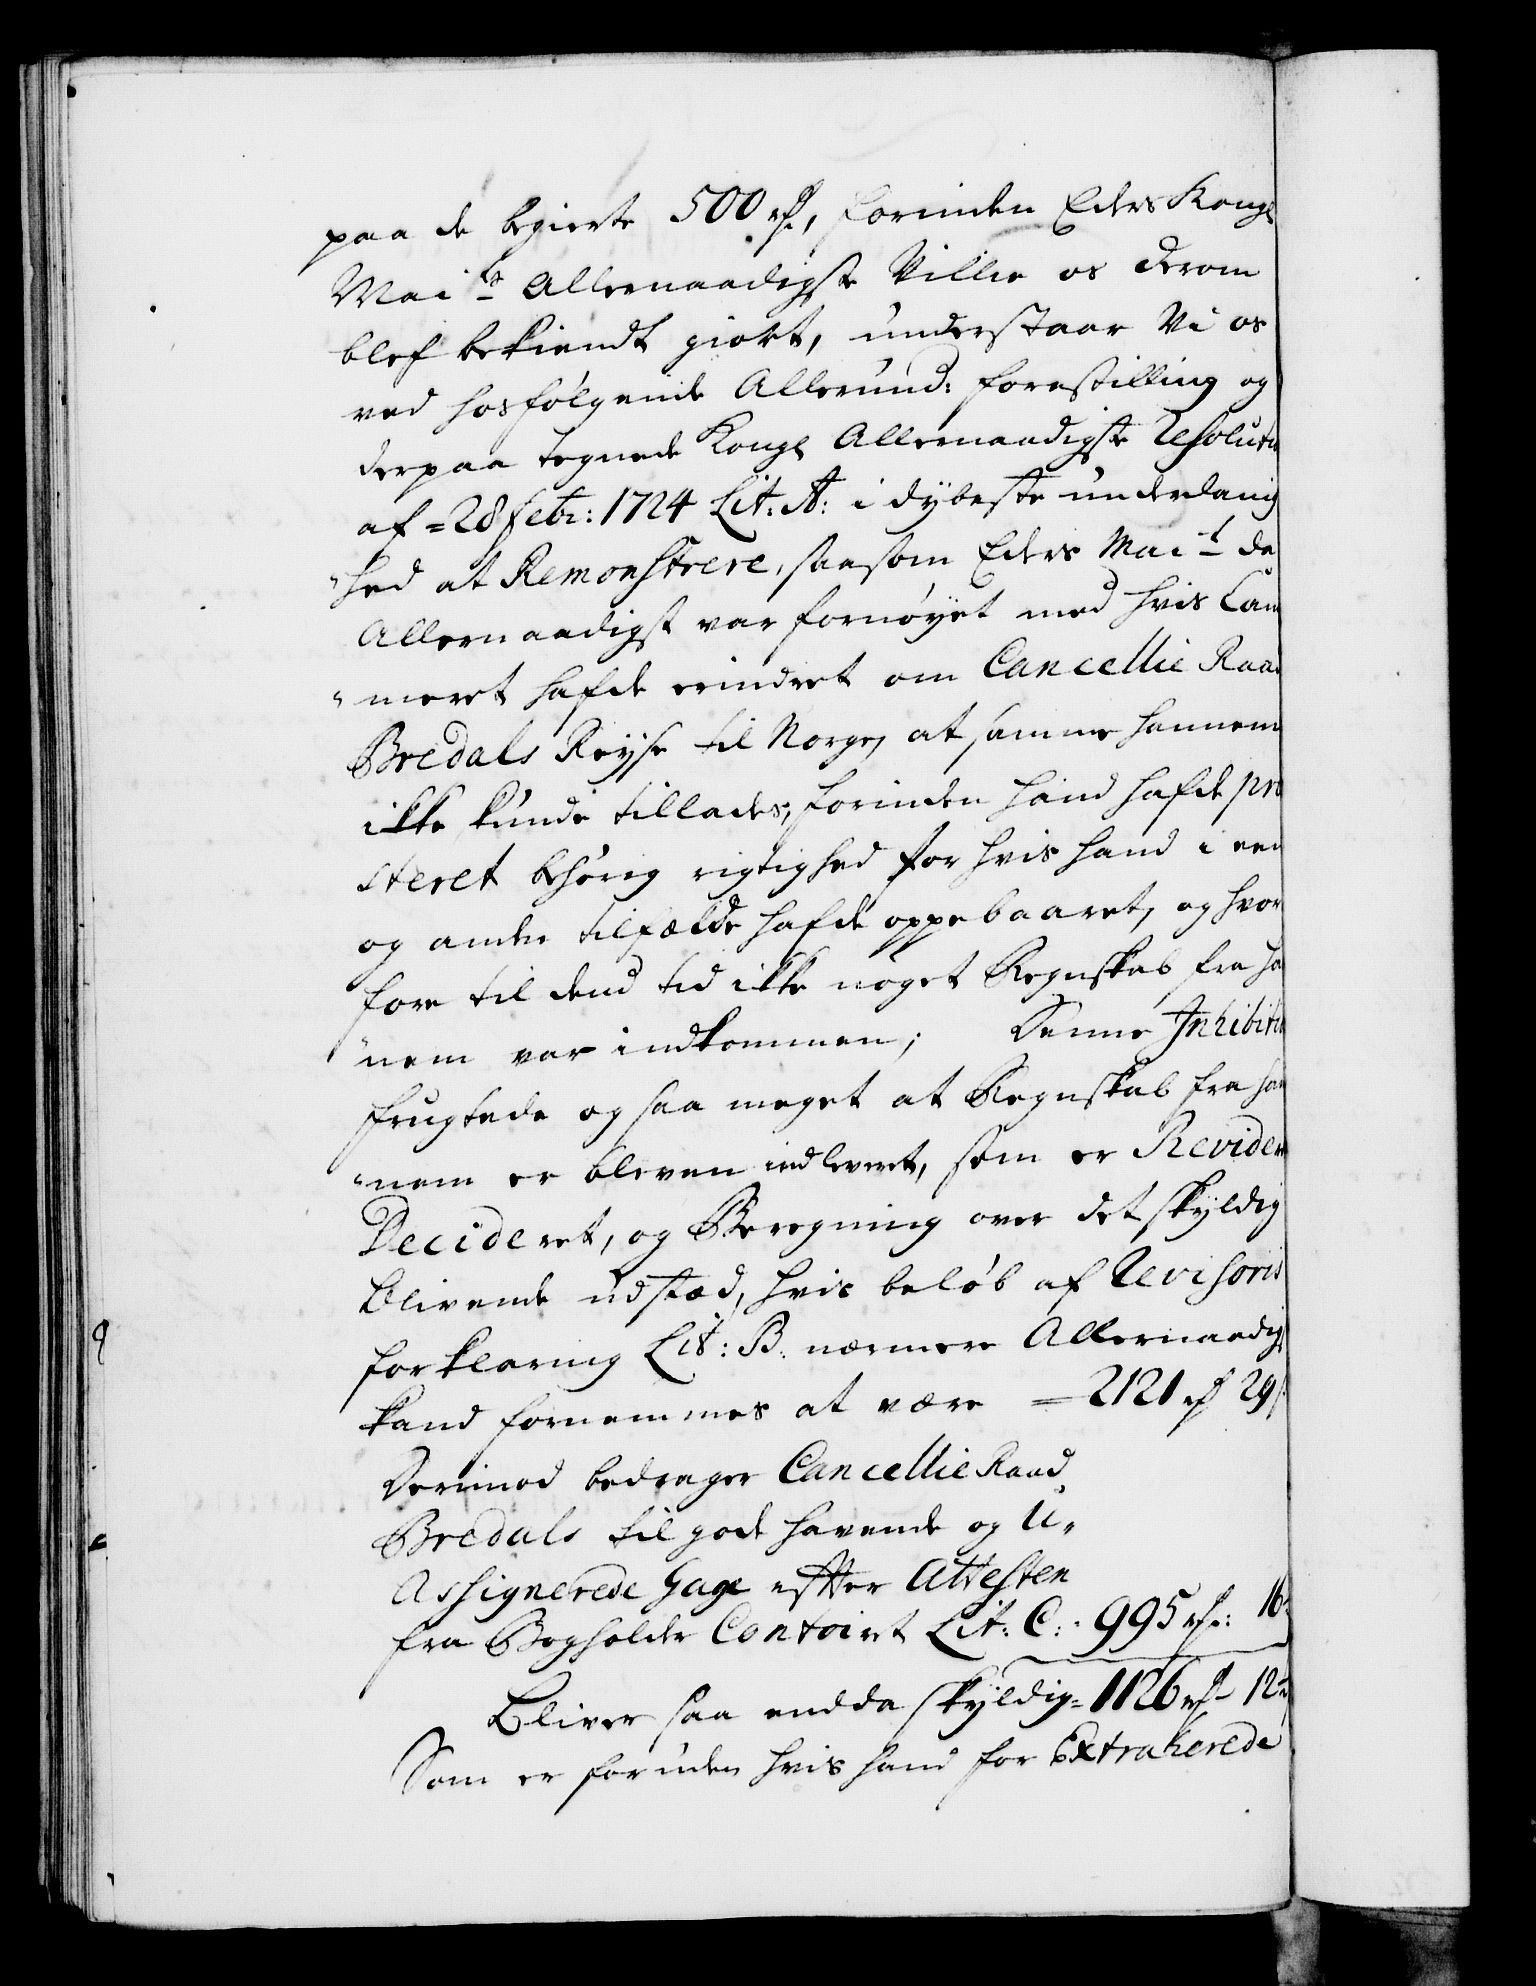 paa de begierte 500 rd, forinden Eders Kongl
Mai ts Allernaadigste Villie os derom
blef bekiendt giort, understaar Vi os
ved hosfølgende Allerund: forestilling og
derpaa tegnede Kongl Allernaadigste Resoluti
af = 28 Febr: 1724 Lit: A: i dybeste underdanig
"hed at Remonstrere, saasom Eders Mai t da
Allernaadigst var fornøyet med hvis Cam
"meret hafde erindret om Cancellie Raad
Bredals Reyse til Norge, at samme hannem
ikke kunde tillades, forinden hand hafde præ
steret behørig rigtighed for hvis hand i een
og anden tilfælde hafde oppebaaret, og hvor
fore til dend tid ikke noget Regnskab fra ha
"nem var indkommen; Denne Inhibitio
frugtede og saa meget at Regnskab fra han
"nem er bleven indleveret, som er Revideret
Decideret, og Beregning over det skyldig
blivende udstæd, hvis beløb af Revisoris
forklaring Lit: B. nærmere Allernaadigst
kand fornemmes at være = 2121 rd 29 s
Derimod bedrager Cancellie Raad
Bredals til gode havende og U"
Assignerede Gage efter Attesten
fra Bogholder Contoiret Lit: C: 995 rd: 16
Bliver saa endda skyldig = 1126 rd 12
Som er foruden hvis hand for Extraherede